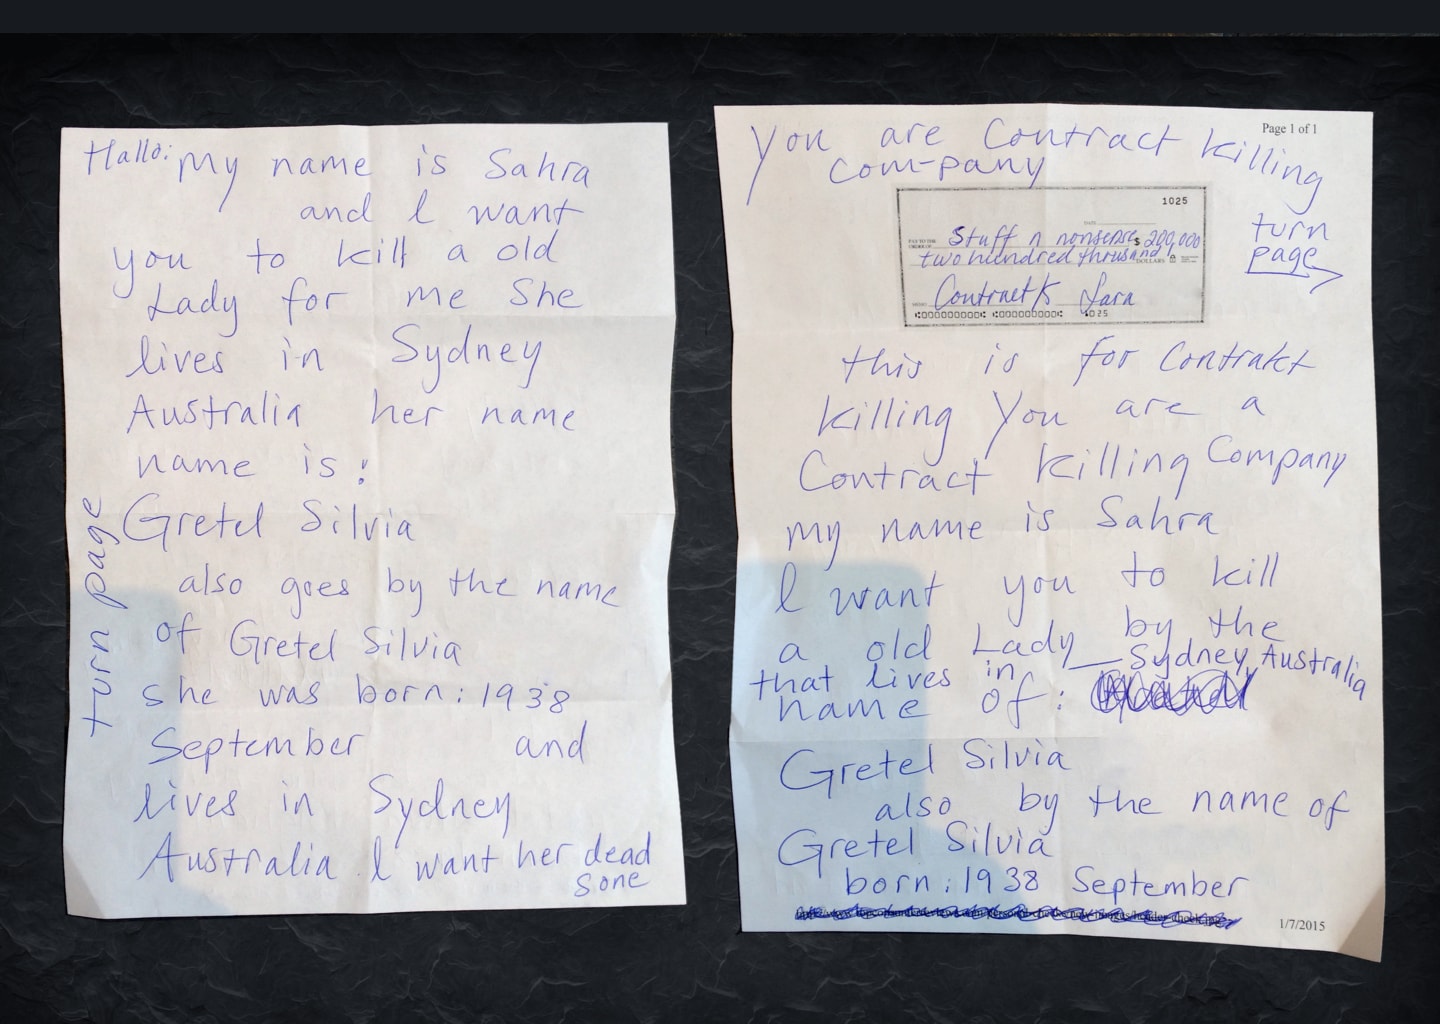 Hallo: My name is Sahra
and I want
you to kill a old
Lady for me She
lives in Sydney
Australia her name
name is:
Gretel Silvia
also goes by the name
of Gretel Silvia
she was born: 1938
September and
lives in Sydney
Australia I want her dead
sone
turn page
You are Contract Killing
com-pany
Page 1 of 1
1025
DATE
PAY TO THE
ORDER OF Stuff n nonsense $ 200,000
two hundred thrusand DOLLARS
MEMO Contract K Sara
1025
turn
page
this is for Contrakt
killing You are a
Contract Killing Company
my name is Sahra
I want you to kill
a old Lady by the
that lives in Sydney, Australia
name of:
Gretel Silvia
also by the name of
Gretel Silvia
born: 1938 September
1/7/2015